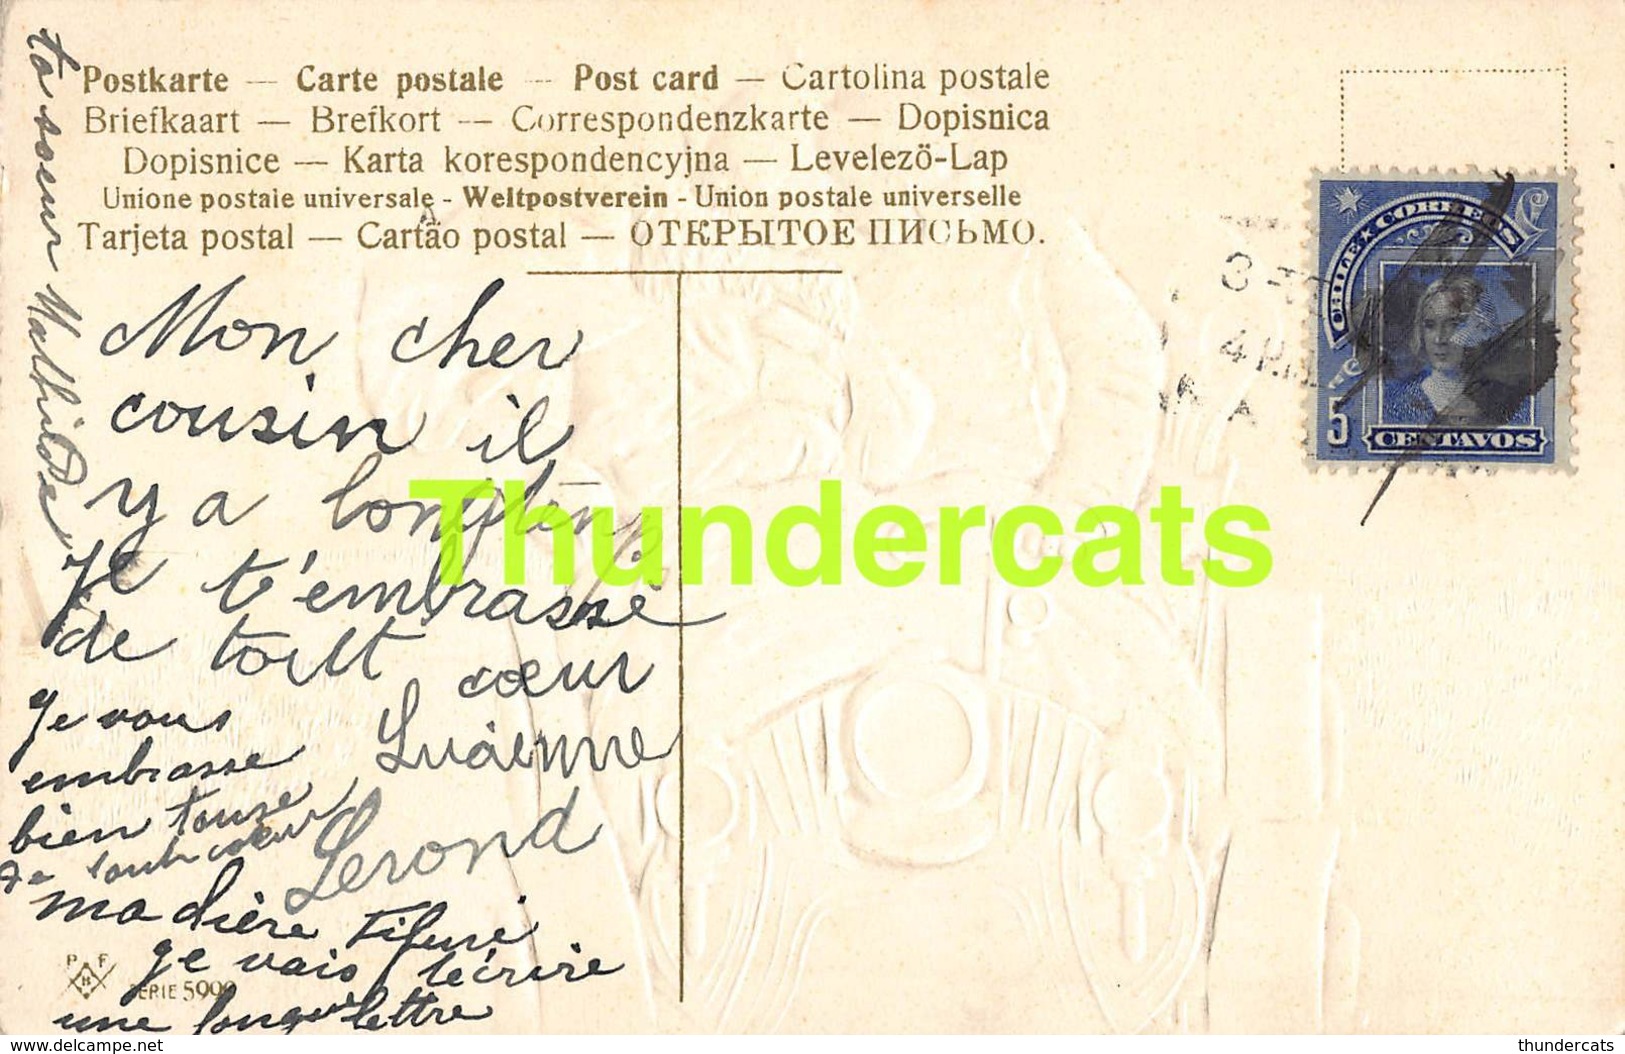 Postkarte — Carte postale — Post card — Cartolina postale
Briefkaart — Brefkort — Correspondenzkarte — Dopisnica
Dopisnice — Karta korespondencyjna — Levelezö-Lap
Unione postale universale - Weltpostverein - Union postale universelle
Tarjeta postal — Cartão postal — ОТКРЫТОЕ ПИСЬМО.
CHILE CORREOS
5 CENTAVOS
4 P.M
Mon cher
cousin il
y a longtemp
Je t'embrasse
de tout
cœur
Lucienne
Lerond
ge vous
embrasse
bien
tout cœur
ma
ge vais técrire
une longue lettre
ta soeur Mathilde
P F
H
SERIE 5000
Thundercats
thundercats
delcampe.net
thundercats